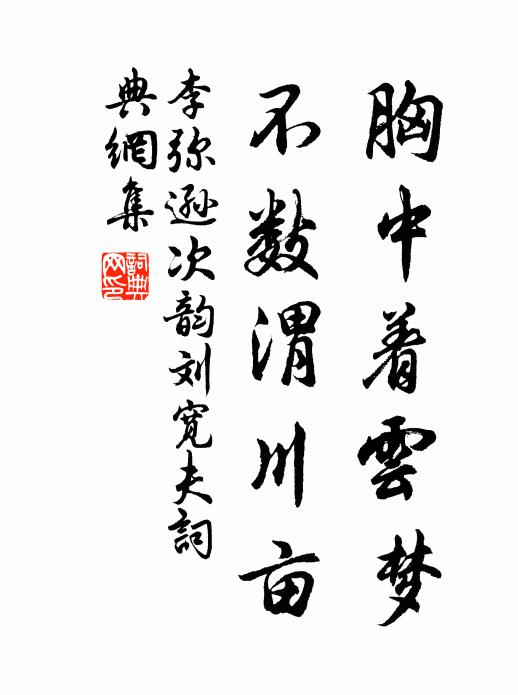 胸中着雲梦
不数渭川亩
李弥逊次韵刘寛夫詞
典網集
詞典网印